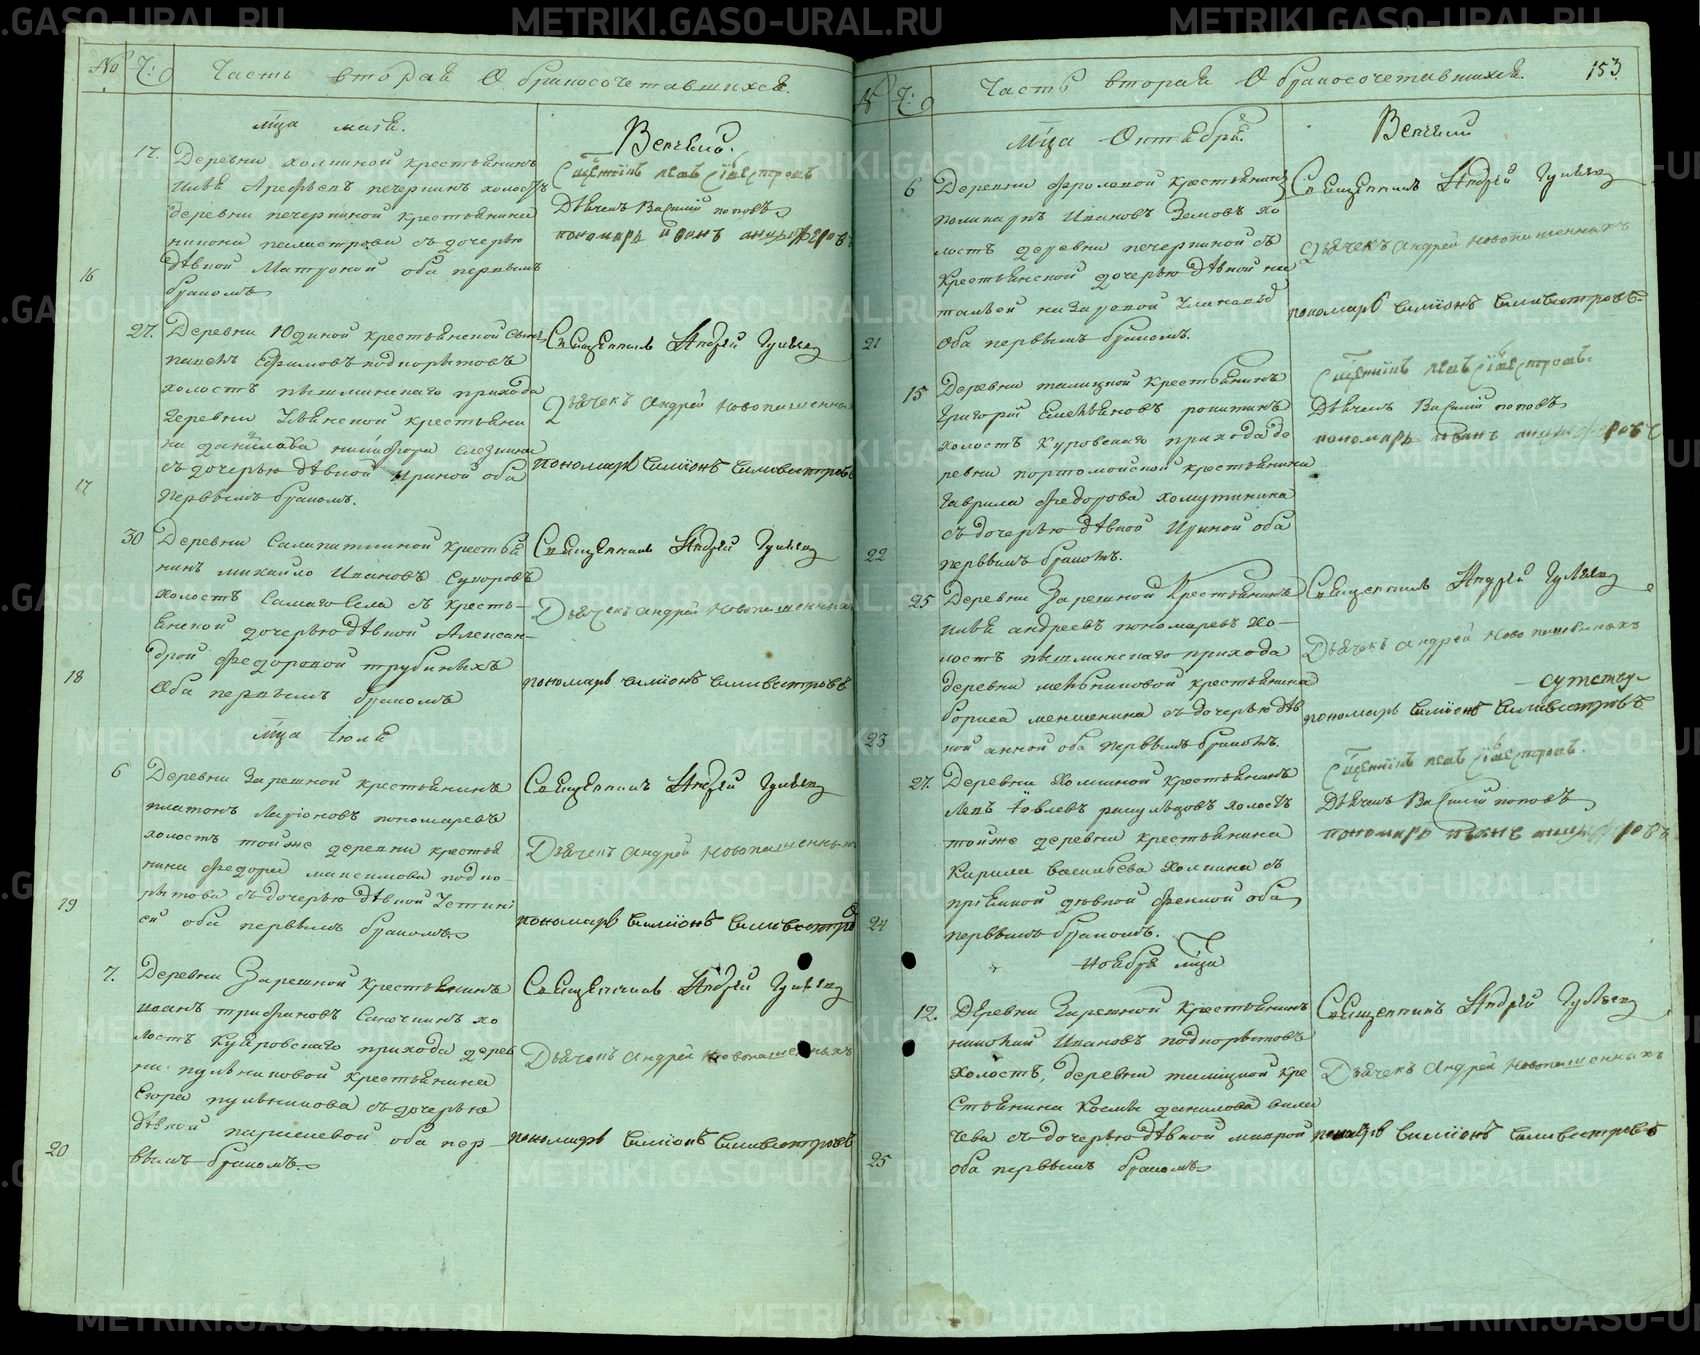 № Ч: Часть вторая О бракосочетавшихся.
мца маія.
Венчены.
17. Деревни холкиной крестьянинъ
илья Арефьевъ печеркинъ холостъ
деревни печеркиной крестьянина
никона селистрова съ дочерью
16
дѣвкой Матроной оба первымъ
бракомъ
Сщенникъ левъ сілвестровъ
Дьячекъ Василій поповъ
пономарь иванъ анцыферовъ
27. Деревни Юдиной крестьянской сынъ
ефимовъ подкорытовъ
холостъ пышминскаго прихода
деревни крестьяни
на данилова никифора
17
съ дочерью дѣвкой Ириной оба
первымъ бракомъ.
Священникъ Андрей Гуляевъ
Дьячекъ Андрей Новопашенныхъ
пономарь Симіонъ Силивестровъ
30 Деревни крестья
нинъ михайло Ивановъ Суворовъ
холостъ Самаго Села съ кресть-
янской дочерью дѣвкой Алексан-
18
дрой Федоровой трубиныхъ
Оба первымъ бракомъ
Священникъ Андрей Гуляевъ
Дьячекъ Андрей Новопашенныхъ
пономарь симіонъ силивестровъ
мца іюля
6 Деревни Зарешной крестьянинъ
платонъ Ларіоновъ пономаревъ
холостъ тойже деревни крестья
нина Федора максимова подко-
19
рытова съ дочерью дѣвкой Устинь
ей оба первымъ бракомъ
Священникъ Андрей Гуляевъ
Дьячекъ Андрей Новопашенныхъ
пономарь Симіонъ Силивестро
7. Деревни Зарешной крестьянинъ
иванъ трифановъ хо
лостъ Куяровскаго прихода дерев
ни пульниковой крестьянина
Егора пульникова съ дочерью
20
дѣвкой оба пер-
вымъ бракомъ
Священникъ Андрей Гуляевъ
Дьячекъ Андрей Новопашенныхъ
пономарь Симіонъ Силивестровъ
№ Ч: Часть вторая О бракосочетавшихся. 153
Мца Октября
Венчены
6 Деревни Фроловой крестьянинъ
поликарпъ Ивановъ Земовъ хо
лостъ деревни печеркиной съ
крестьянской дочерью дѣвкой на
тальей назаровой
21
Оба первымъ бракомъ.
Священникъ Андрей Гуляевъ
дьячекъ Андрей новопашенныхъ
пономарь Симіонъ Силивестровъ
15 Деревни талицкой крестьянинъ
Григорій Емельяновъ
холостъ Куровскаго прихода де
ревни портомойской крестьянина
Гаврила Федорова хомутинина
съ дочерью дѣвкой Ириной оба
22
первымъ бракомъ.
Сщенникъ левъ сілвестровъ.
Дьячекъ Василій поповъ
пономарь иванъ анцыферовъ
25 Деревни Зарешной Крестьянинъ
илья андреевъ пономаревъ хо-
лостъ пышминскаго прихода
деревни мельниковой крестьянина
бориса меншенина съ дочерью дѣв
23
кой анной оба первымъ бракомъ.
Священникъ Андрей Гуляевъ
Дьячекъ Андрей Новопашенныхъ
пономарь Симіонъ Силивестровъ
27. Деревни Холкиной крестьянинъ
Левъ іовлевъ холостъ
тойже деревни крестьянина
Карила васильева Холкина съ
пріемной дѣвкой Феклой оба
24
первымъ бракомъ.
Сщенникъ левъ сілвестровъ.
Дьячекъ Василій поповъ
пономарь иванъ анцыферовъ
ноября мца
12. Деревни Зарешной Крестьянинъ
Ивановъ подкорытовъ
Холостъ, деревни талицкой кре
стьянина Космы данилова
чева съ дочерью дѣвкой маврой
25
оба первымъ бракомъ
Священникъ Андрей Гуляевъ
Дьячекъ Андрей Новопашенныхъ
Симіонъ Силивестровъ
METRIKI.GASO-URAL.RU